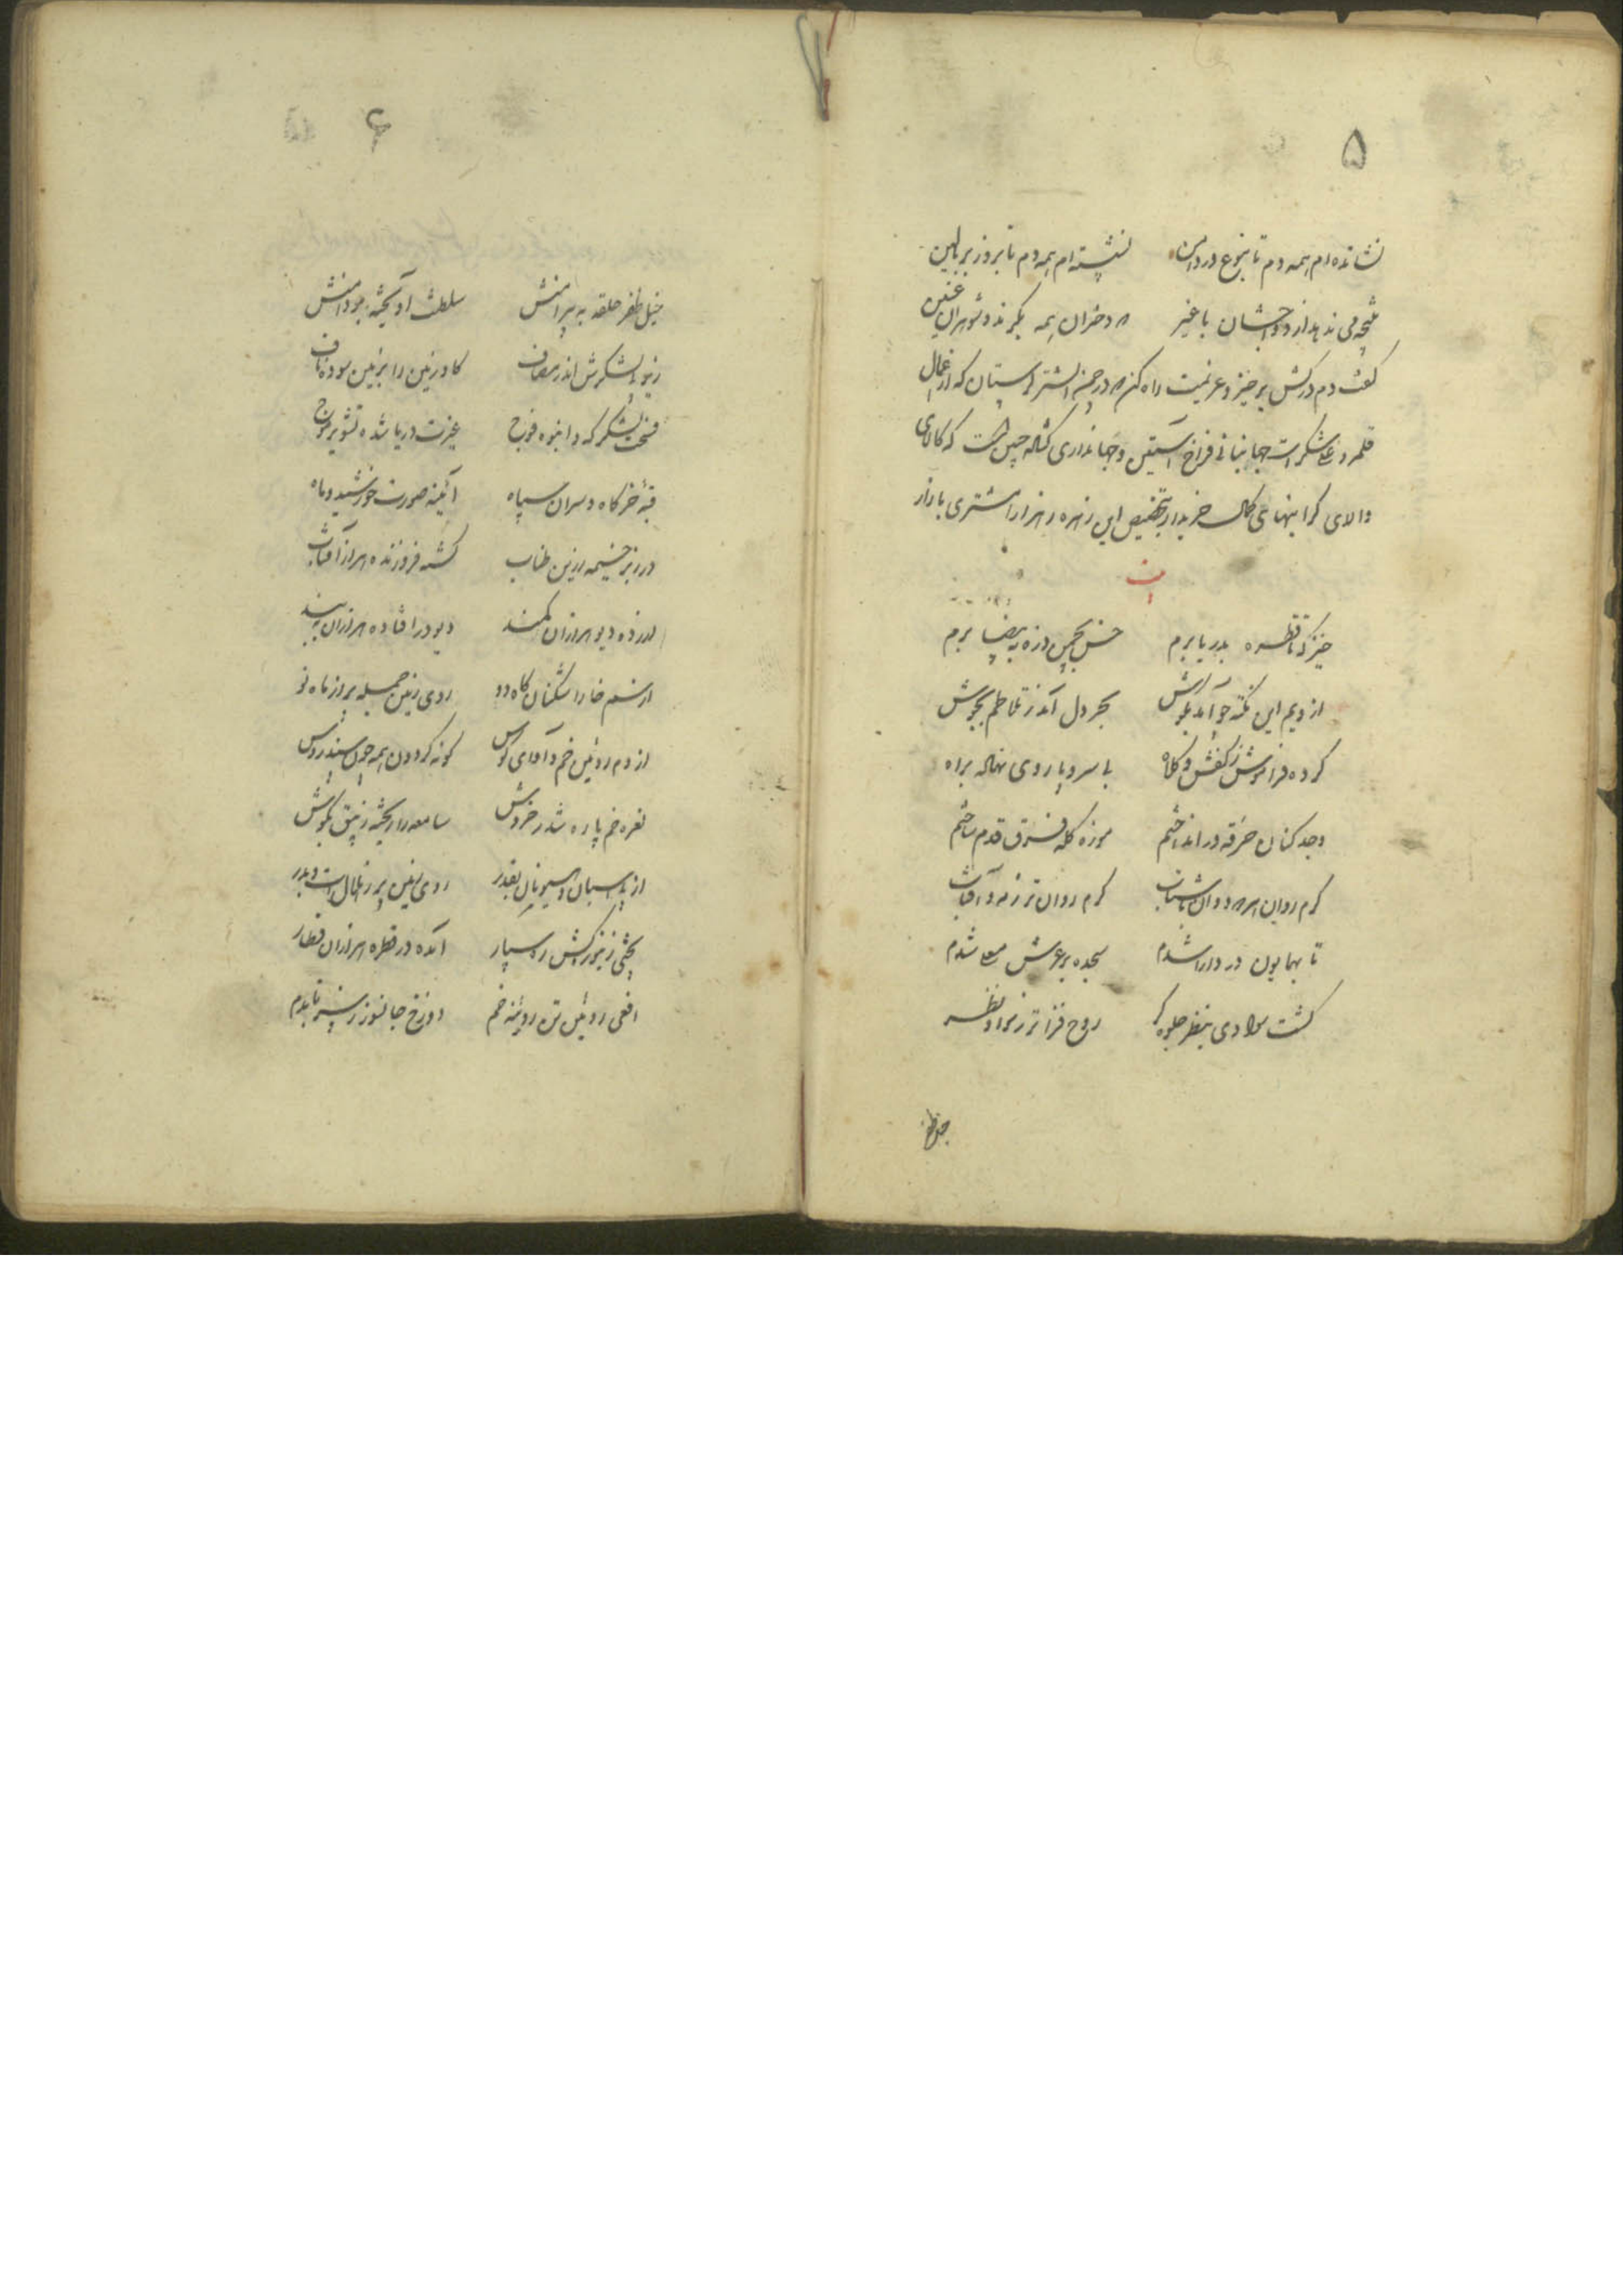 ۵
نشانده‌ام همه دم تا بنزع در دامن نشسته‌ام همه دم تا بروز بر بالین
نتیجه می ندهد ازدواجشان با غیر که دختران همه بکرند و شوهران عنین
گفت دم درکش برخیز و عزیمت راه کن که در چمن اشتر کهستان که از اعمال
قلمرو علیشکر است جهانبانی فراخ آستین و جهانداری کلاله چین است که کالای
والای گرانبهای کمال خریدار بتخصیص این زهره زهرا را مشتری بازار
است
خیز که تا قطره بدریا بریم خس بچمن ذره به بیضا بریم
از ویم این نکته چو آمد بگوش بحر دل آمد ز تلاطم بجوش
کرده فراموش ز کفش و کلاه با سر و پا روی نهاده براه
وجد کنان خرقه در انداختم موزه کله فرق قدم ساختم
گرم روان همره دوان باشتاب گرم روان‌تر ز مه و آفتاب
تا بهمایون در دارا شدم سجده بر عرش معلا شدم
گشت سوادی بنظر جلوه‌گر روح‌فزاتر ز سواد نظر
۶
خیل ظفر حلقه به پیرامنش سلطنت آویخته بر دامنش
زیر پی لشکرش اندر مصاف گاو زمین را بزمین سوده ناف
فسحت لشکرگه و انبوه فوج غیرت دریا شده تشویر موج
قبهٔ خرگاه و سران سپاه آئینه صورت خورشید و ماه
در زبر خیمه زرین طناب گشته فروزنده هزار آفتاب
ارزده دیو هزاران کمند دیو در افتاده هزاران به بند
از سم خارا شکنان گاه دو روی زمین جمله پر از ماه نو
از دم روئین خم و آوای کوس گونه گردون همه چون سندروس
نعره خم پاره شد در خروش سامعه را ریخته زیبق بگوش
روی زمین پر ز هلال است و بدر
بختی زنبورکش رهسپار آمده در قطره هزاران قطار
افعی روئین تن روئینه خم دوزخ جانسوز ز سر تا بدم